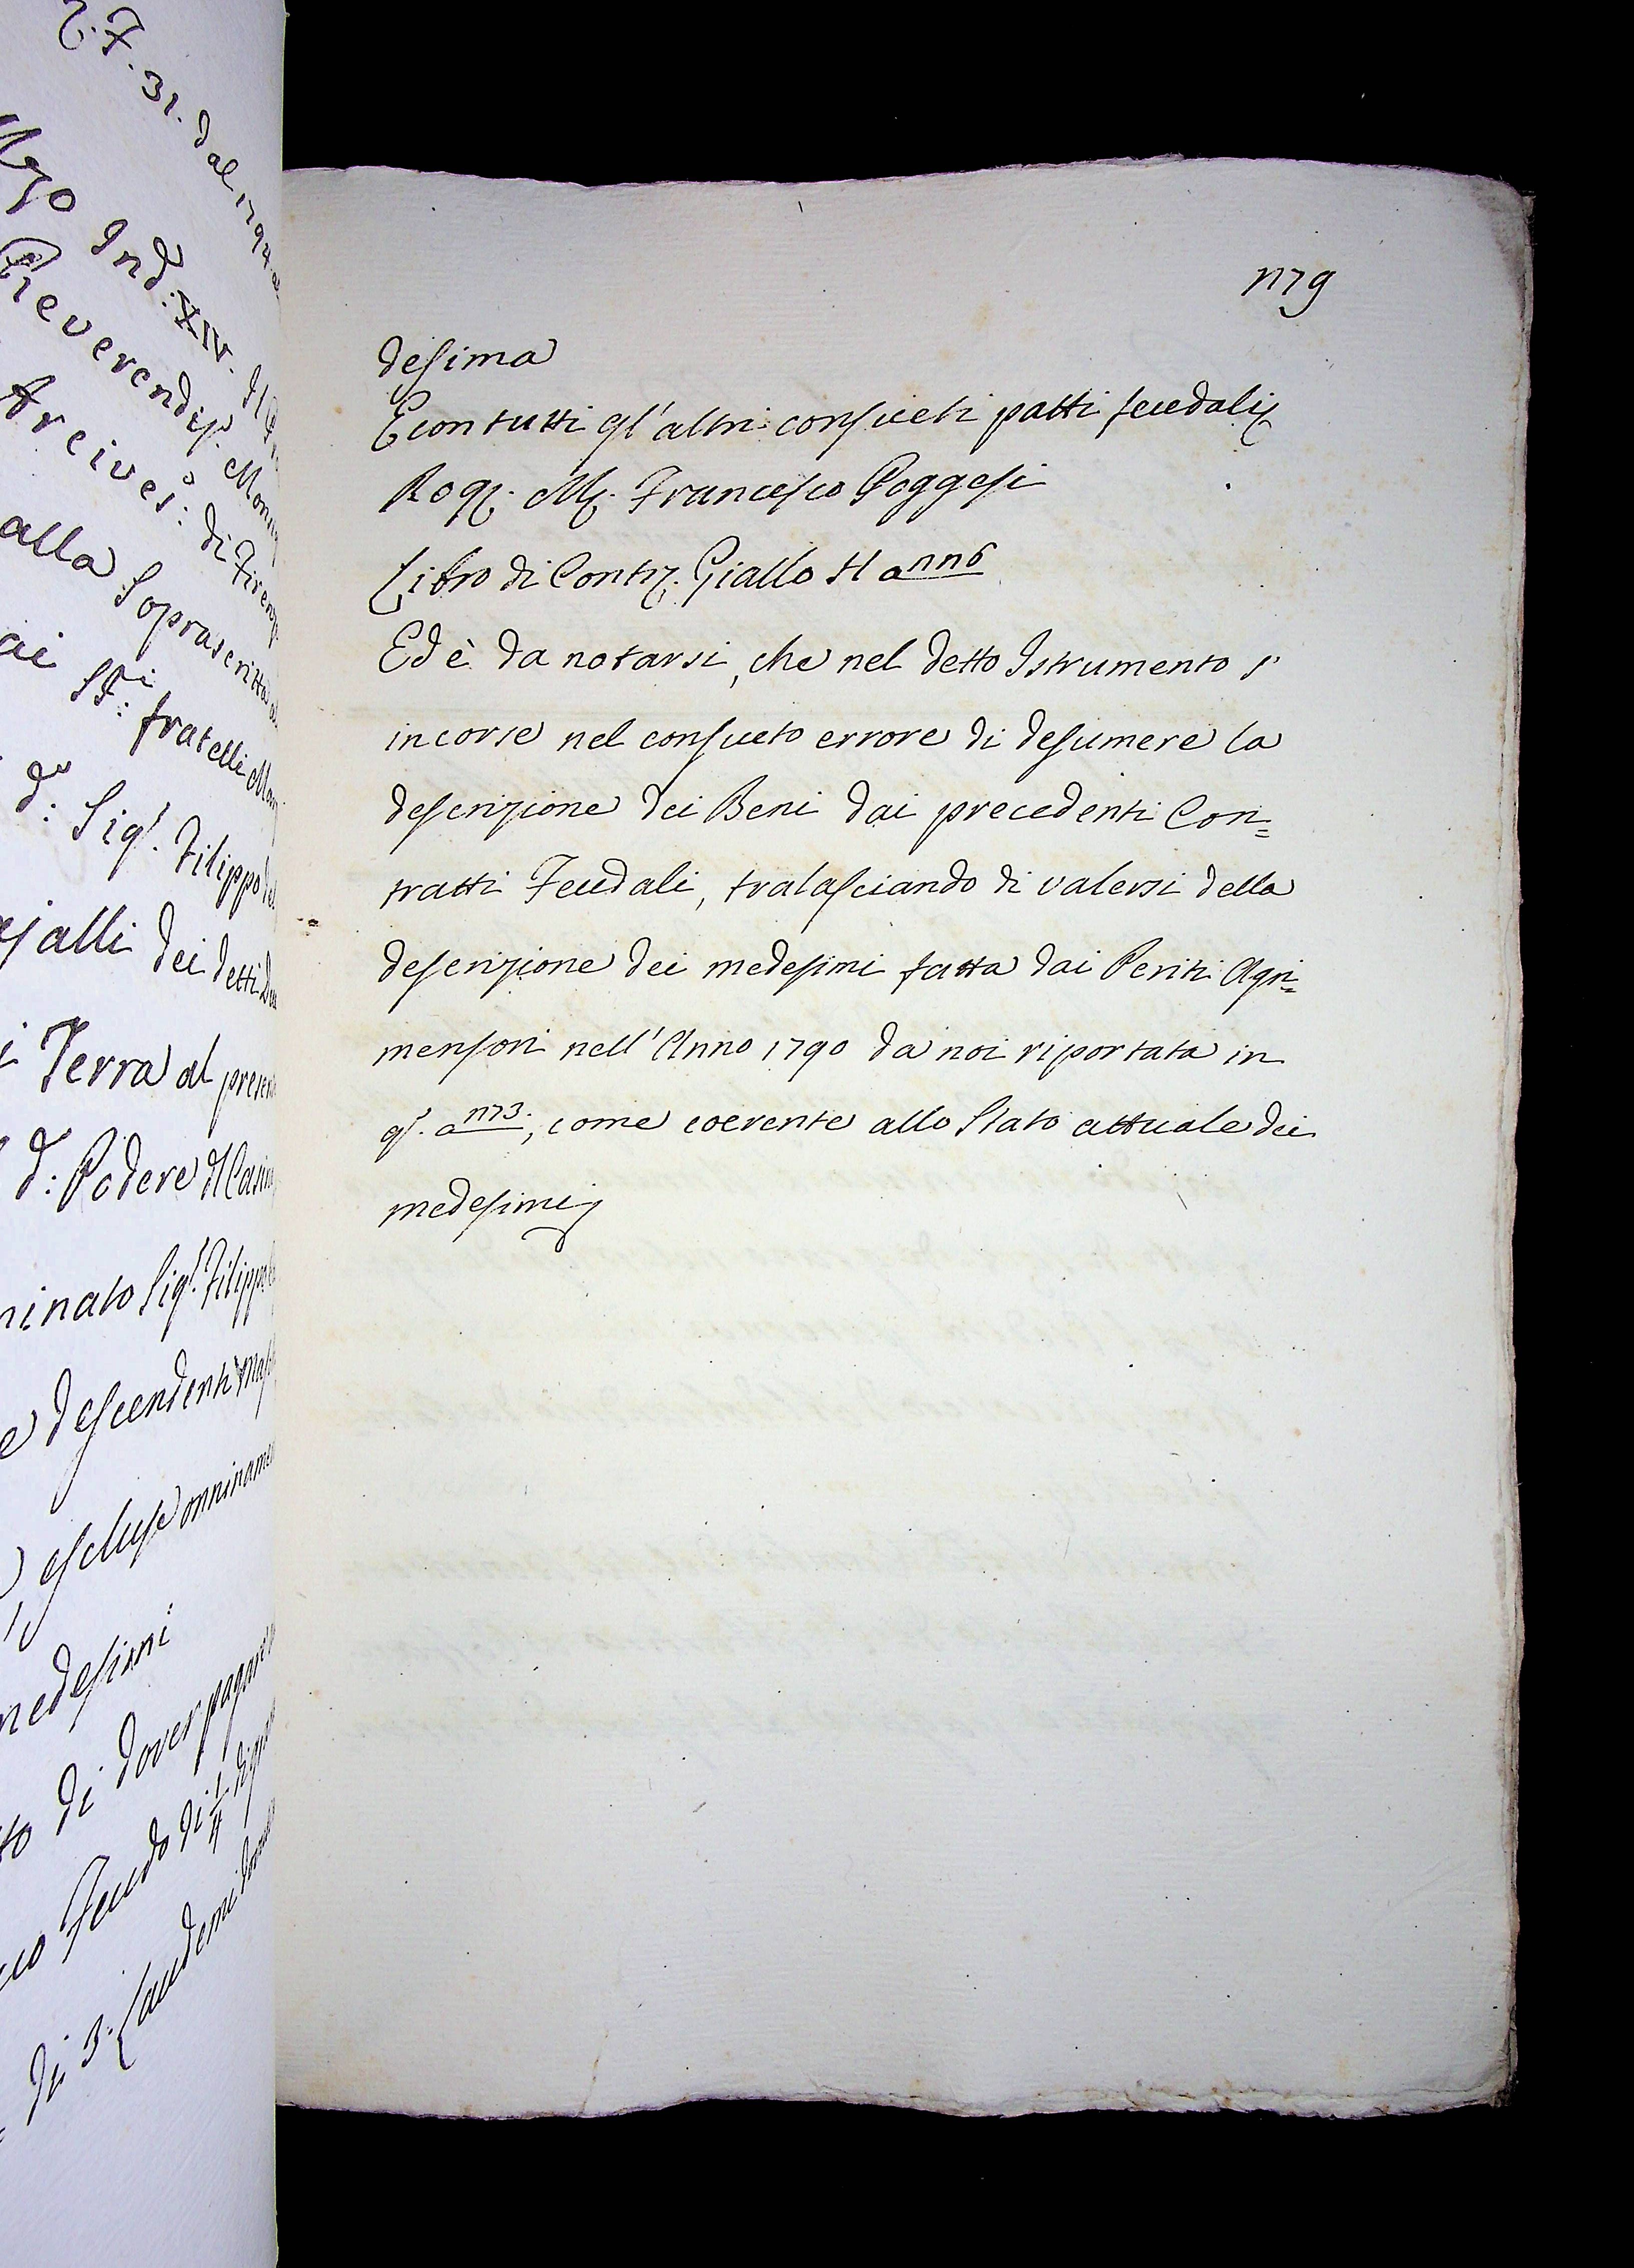 Z. F. 31. dal 1792
Ind: XIV.
Reverendis.
Arcives: di Firenze
alla Soprascritta
ai SS.ri fratelli
d: Sig.r Filippo
dei detti
Terra al presen
d: Podere Il Casin
minato Sig.r Filippo
e descendenti
escluse onninamen
medesimi
di dover pagare
Feudo di 1/4
di 3. Laudemi
1179
desima
E con tutti gl'altri consueti patti feudali
Rog. M. Francesco Poggesi
Libro di Contr. Giallo H a 1116
Ed è da notarsi, che nel detto Istrumento s'
incorse nel consueto errore di desumere la
descrizione dei Beni dai precedenti Con=
tratti Feudali, tralasciando di valersi della
descrizione dei medesimi fatta dai Periti Agri=
mensori nell'Anno 1790 da noi riportata in
q.o a 1173., come coerente allo Stato attuale dei
medesimi